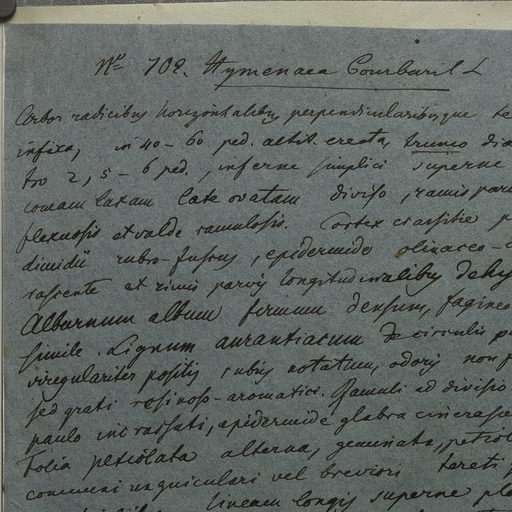 Nro 702. Hymenaea Courbaril L
Arbor radicibus horizontalibus, perpendicularibusque te
infixa, in 40 - 60 ped. altit. erecta, trunco dia
tro 2, 5 - 6 ped., inferne simplici superne
comam laxam late ovatam diviso, ramis
flexuosis et valde ramulosis. Cortex crassitie p
dimidii rubro-fuscus, epidermide olivaceo-c
et rimis parvis longitudinalibus dehy
Alburnum album firmum densum, fagineo
simile. Lignum aurantiacum circulis
irregulariter positis rubris notatum, odoris non
sed grati resinoso-aromatici. Ramuli ad divisio
paulo incrassati, epidermide glabra cinerasce
Folia petiolata alterna, geminata, petiol
communi unguiculari vel breviori tereti p
lineam longis superne pla